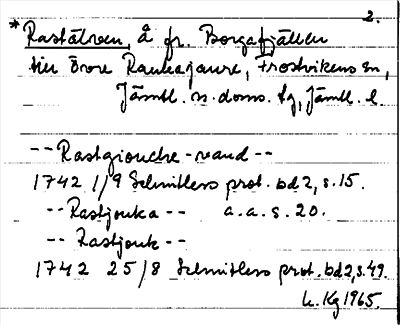 2.
*Rastälven, å fr. Borgafjällen
till Övre Raukasjaure, Frostvikens sn,
Jämtl. n. doms. tg, Jämtl. l.
-- Rastgiouche-waud --
1742 1/9 Schnitlers prot. bd 2, s. 15.
-- Rastjouka -- a.a. s. 20.
-- Rastjouk --
1742 25/8 Schnitlers prot. bd 2, s. 49.
Kg 1965.